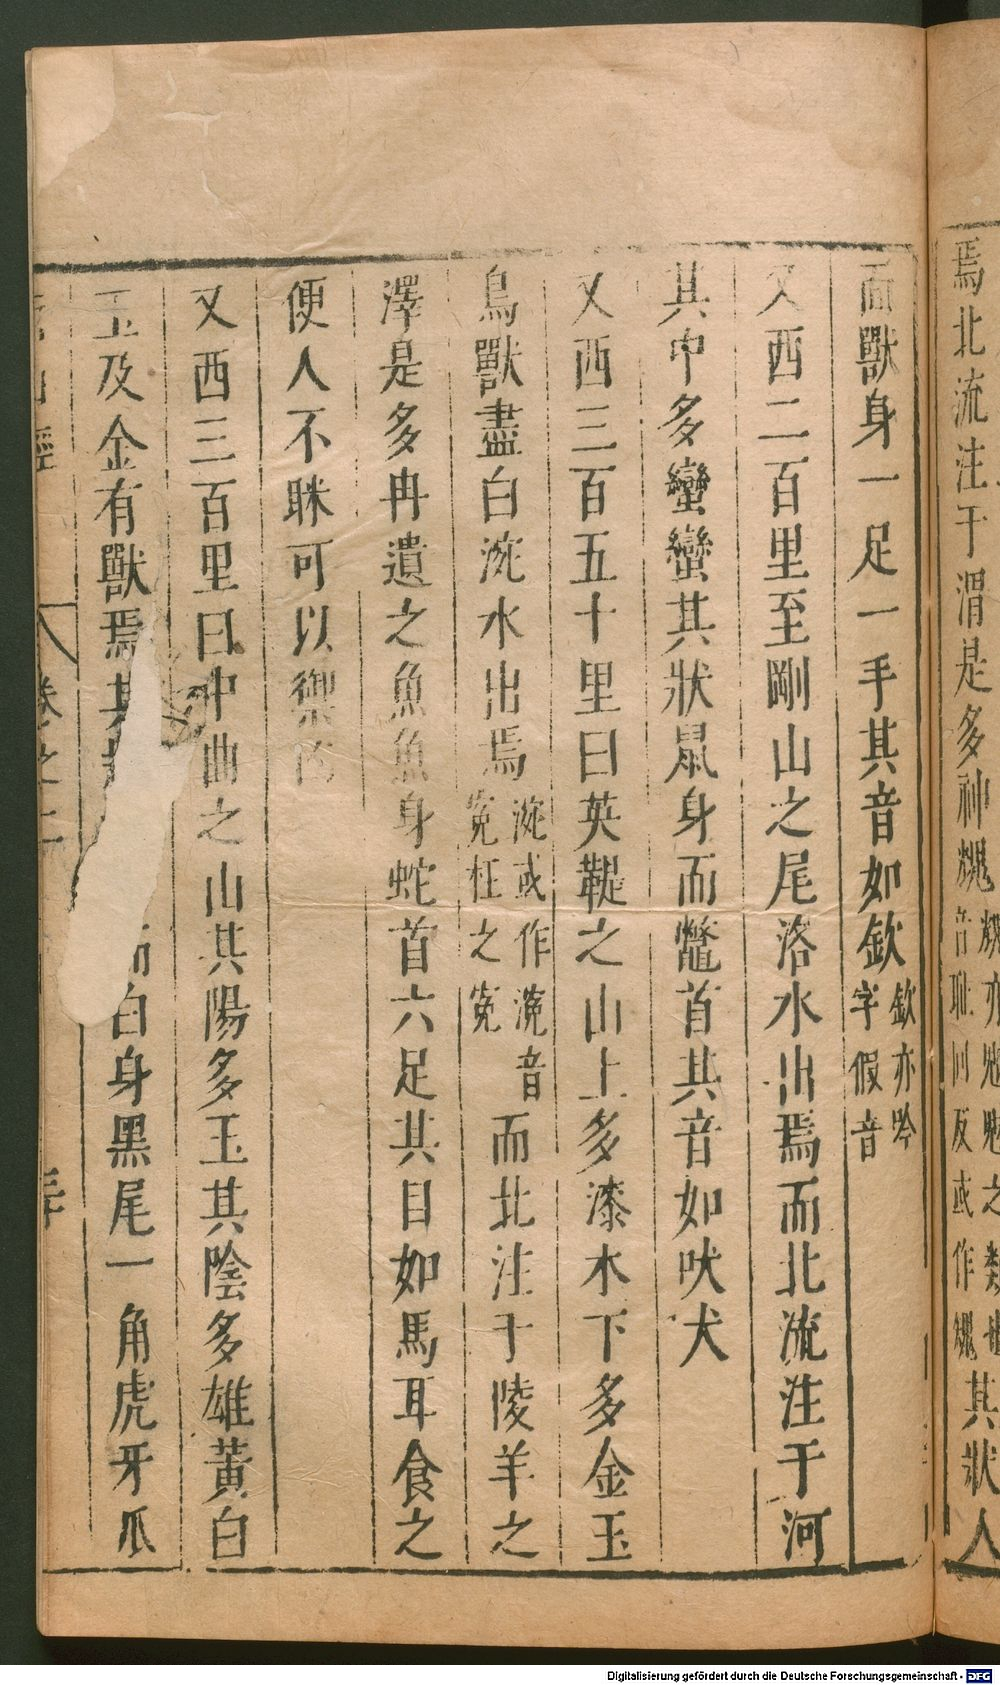 焉北流注于渭是多神𩳁
其狀人
面獸身一足一手其音如欽欽亦吟字假音
又西二百里至剛山之尾洛水出焉而北流注于河
其中多蠻蠻其狀鼠身而鼈首其音如吠犬
又西三百五十里曰英鞮之山上多漆木下多金玉
鳥獸盡白涴水出焉涴或作溾音冤枉之冤而北注于陵羊之
澤是多冉遺之魚魚身蛇首六足其目如馬耳食之
便人不眯可以禦凶
又西三百里曰中曲之山其陽多玉其陰多雄黃白
玉及金有獸焉其 白身黑尾一角虎牙爪
山經 卷之二
Digitalisierung gefördert durch die Deutsche Forschungsgemeinschaft - DFG